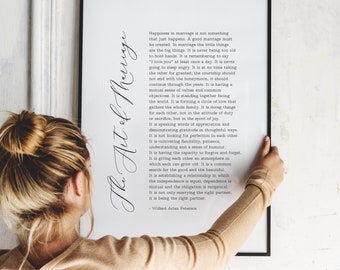 The Art of Marriage
Happiness in marriage is not something
that just happens. A good marriage must
be created. In marriage the little things
are the big things. It is never being too old
to hold hands. It is remembering to say
"I love you" at least once a day. It is never
going to sleep angry. It is at no time taking
the other for granted; the courtship should
not end with the honeymoon, it should
continue through the years. It is having a
mutual sense of values and common
objectives. It is standing together facing
the world. It is forming a circle of love that
gathers the whole family. It is doing things
for each other, not in the attitude of duty
or sacrifice, but in the spirit of joy.
It is speaking words of appreciation and
demonstrating gratitude in thoughtful ways.
It is not looking for perfection in each other.
It is cultivating flexibility, patience,
understanding and a sense of humour.
It is having the capacity to forgive and forget.
It is giving each other an atmosphere in
which each can grow old. It is a common
search for the good and the beautiful.
It is establishing a relationship in which
the independence is equal, dependence is
mutual and the obligation is reciprocal.
It is not only marrying the right partner,
it is being the right partner.
- Wilferd Arlan Peterson